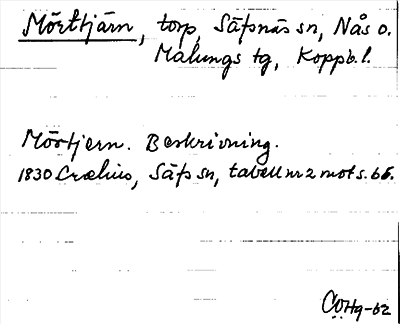 Mörttjärn, torp, Säfsnäs sn, Nås o.
Malungs tg, Koppb. l.
Mörtjern. Beskrivning.
1830 Crælius, Säfs sn, tabell nr 2 mot s. 66.
COHg-62